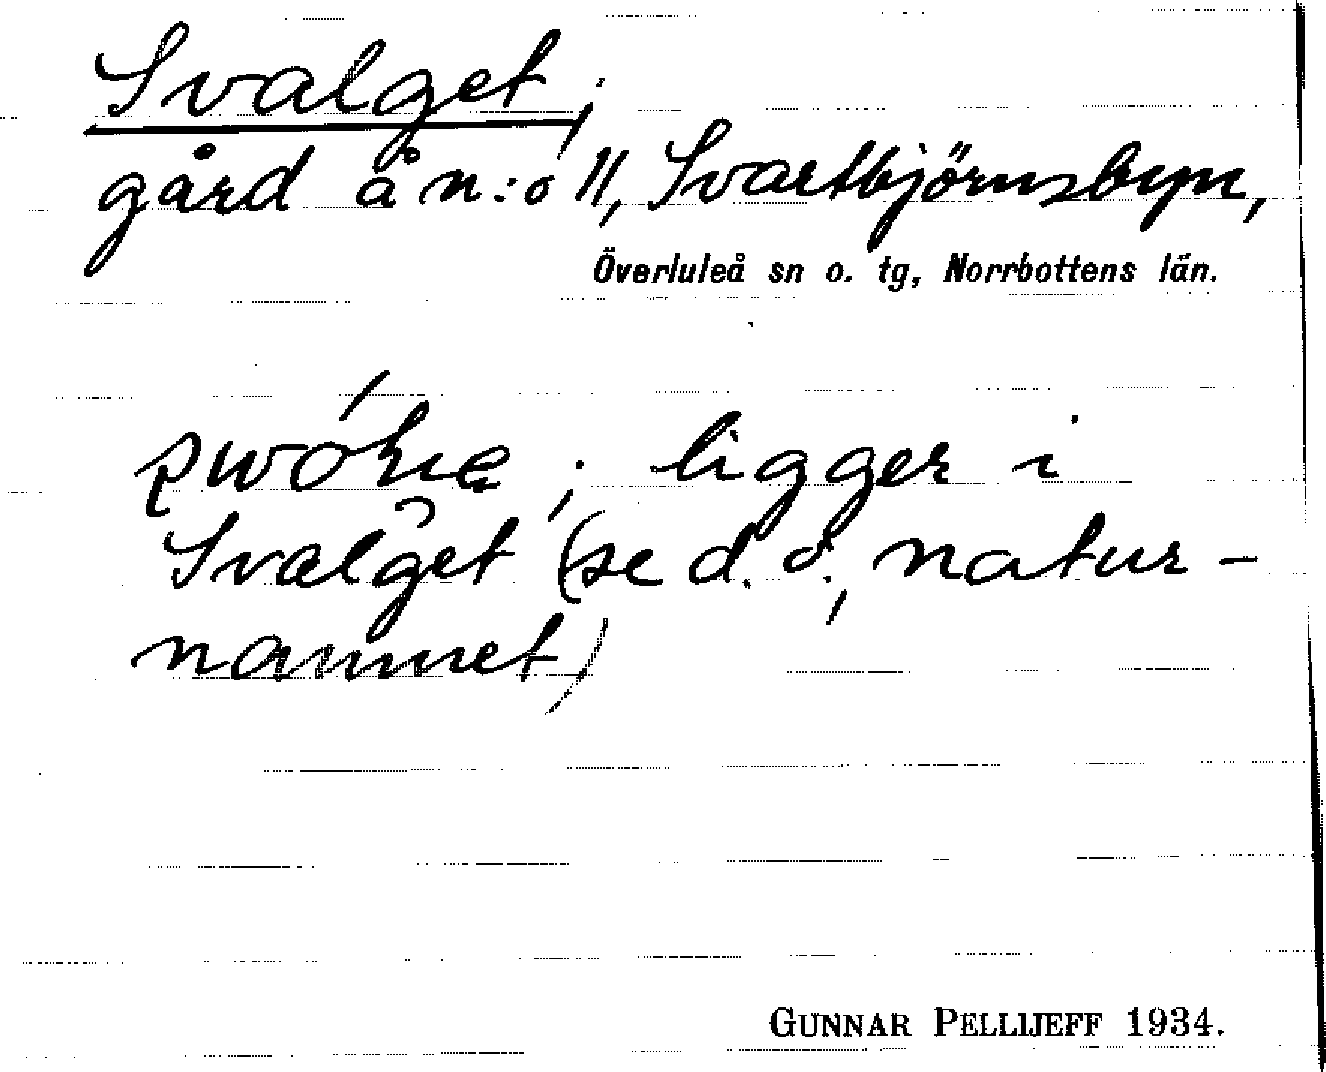 Svalget;
gård å n:o 11, Svartbjörnsbyn,
Överluleå sn o. tg, Norrbottens län.
; ligger i
Svalget (se d. o., natur-
namnet)
GUNNAR PELLIJEFF 1934.